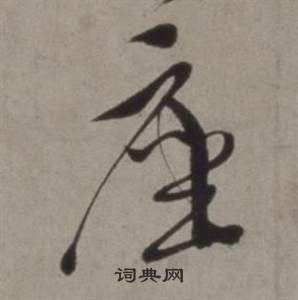 座
词典网